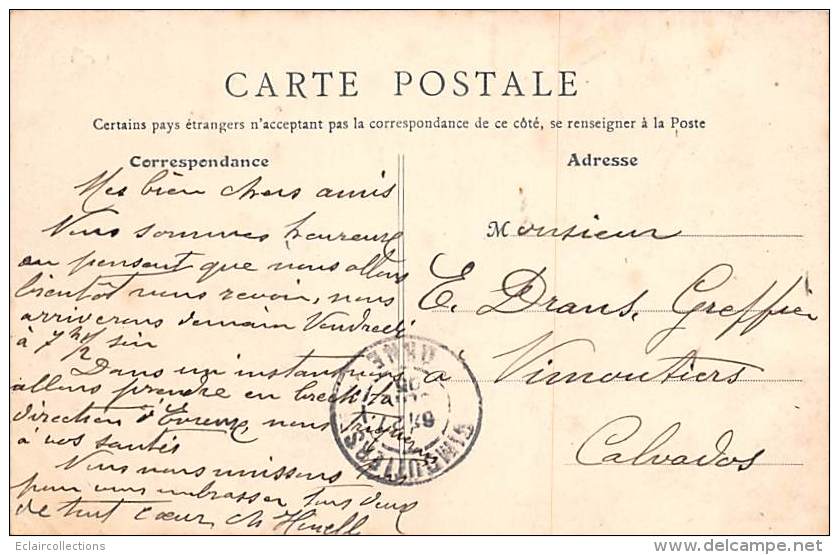 CARTE POSTALE
Certains pays étrangers n'acceptant pas la correspondance de ce côté, se renseigner à la Poste
Correspondance
Mes bien chers amis
Nous sommes heureux
en pensant que nous allons
bientôt nous revoir, nous
arriverons demain Vendredi
à 7h1/2 soir
Dans un instant nous
allons prendre en break la
direction d'Evreux, nous
à vos santés
Nous nous unissons
pour vous embrasser tous deux
de tout cœur, ch
Adresse
Monsieur
E. Drans, Greffier
a Vimoutiers
Calvados
VIMOUTIERS
ORNE
Eclaircollections
delcampe.net